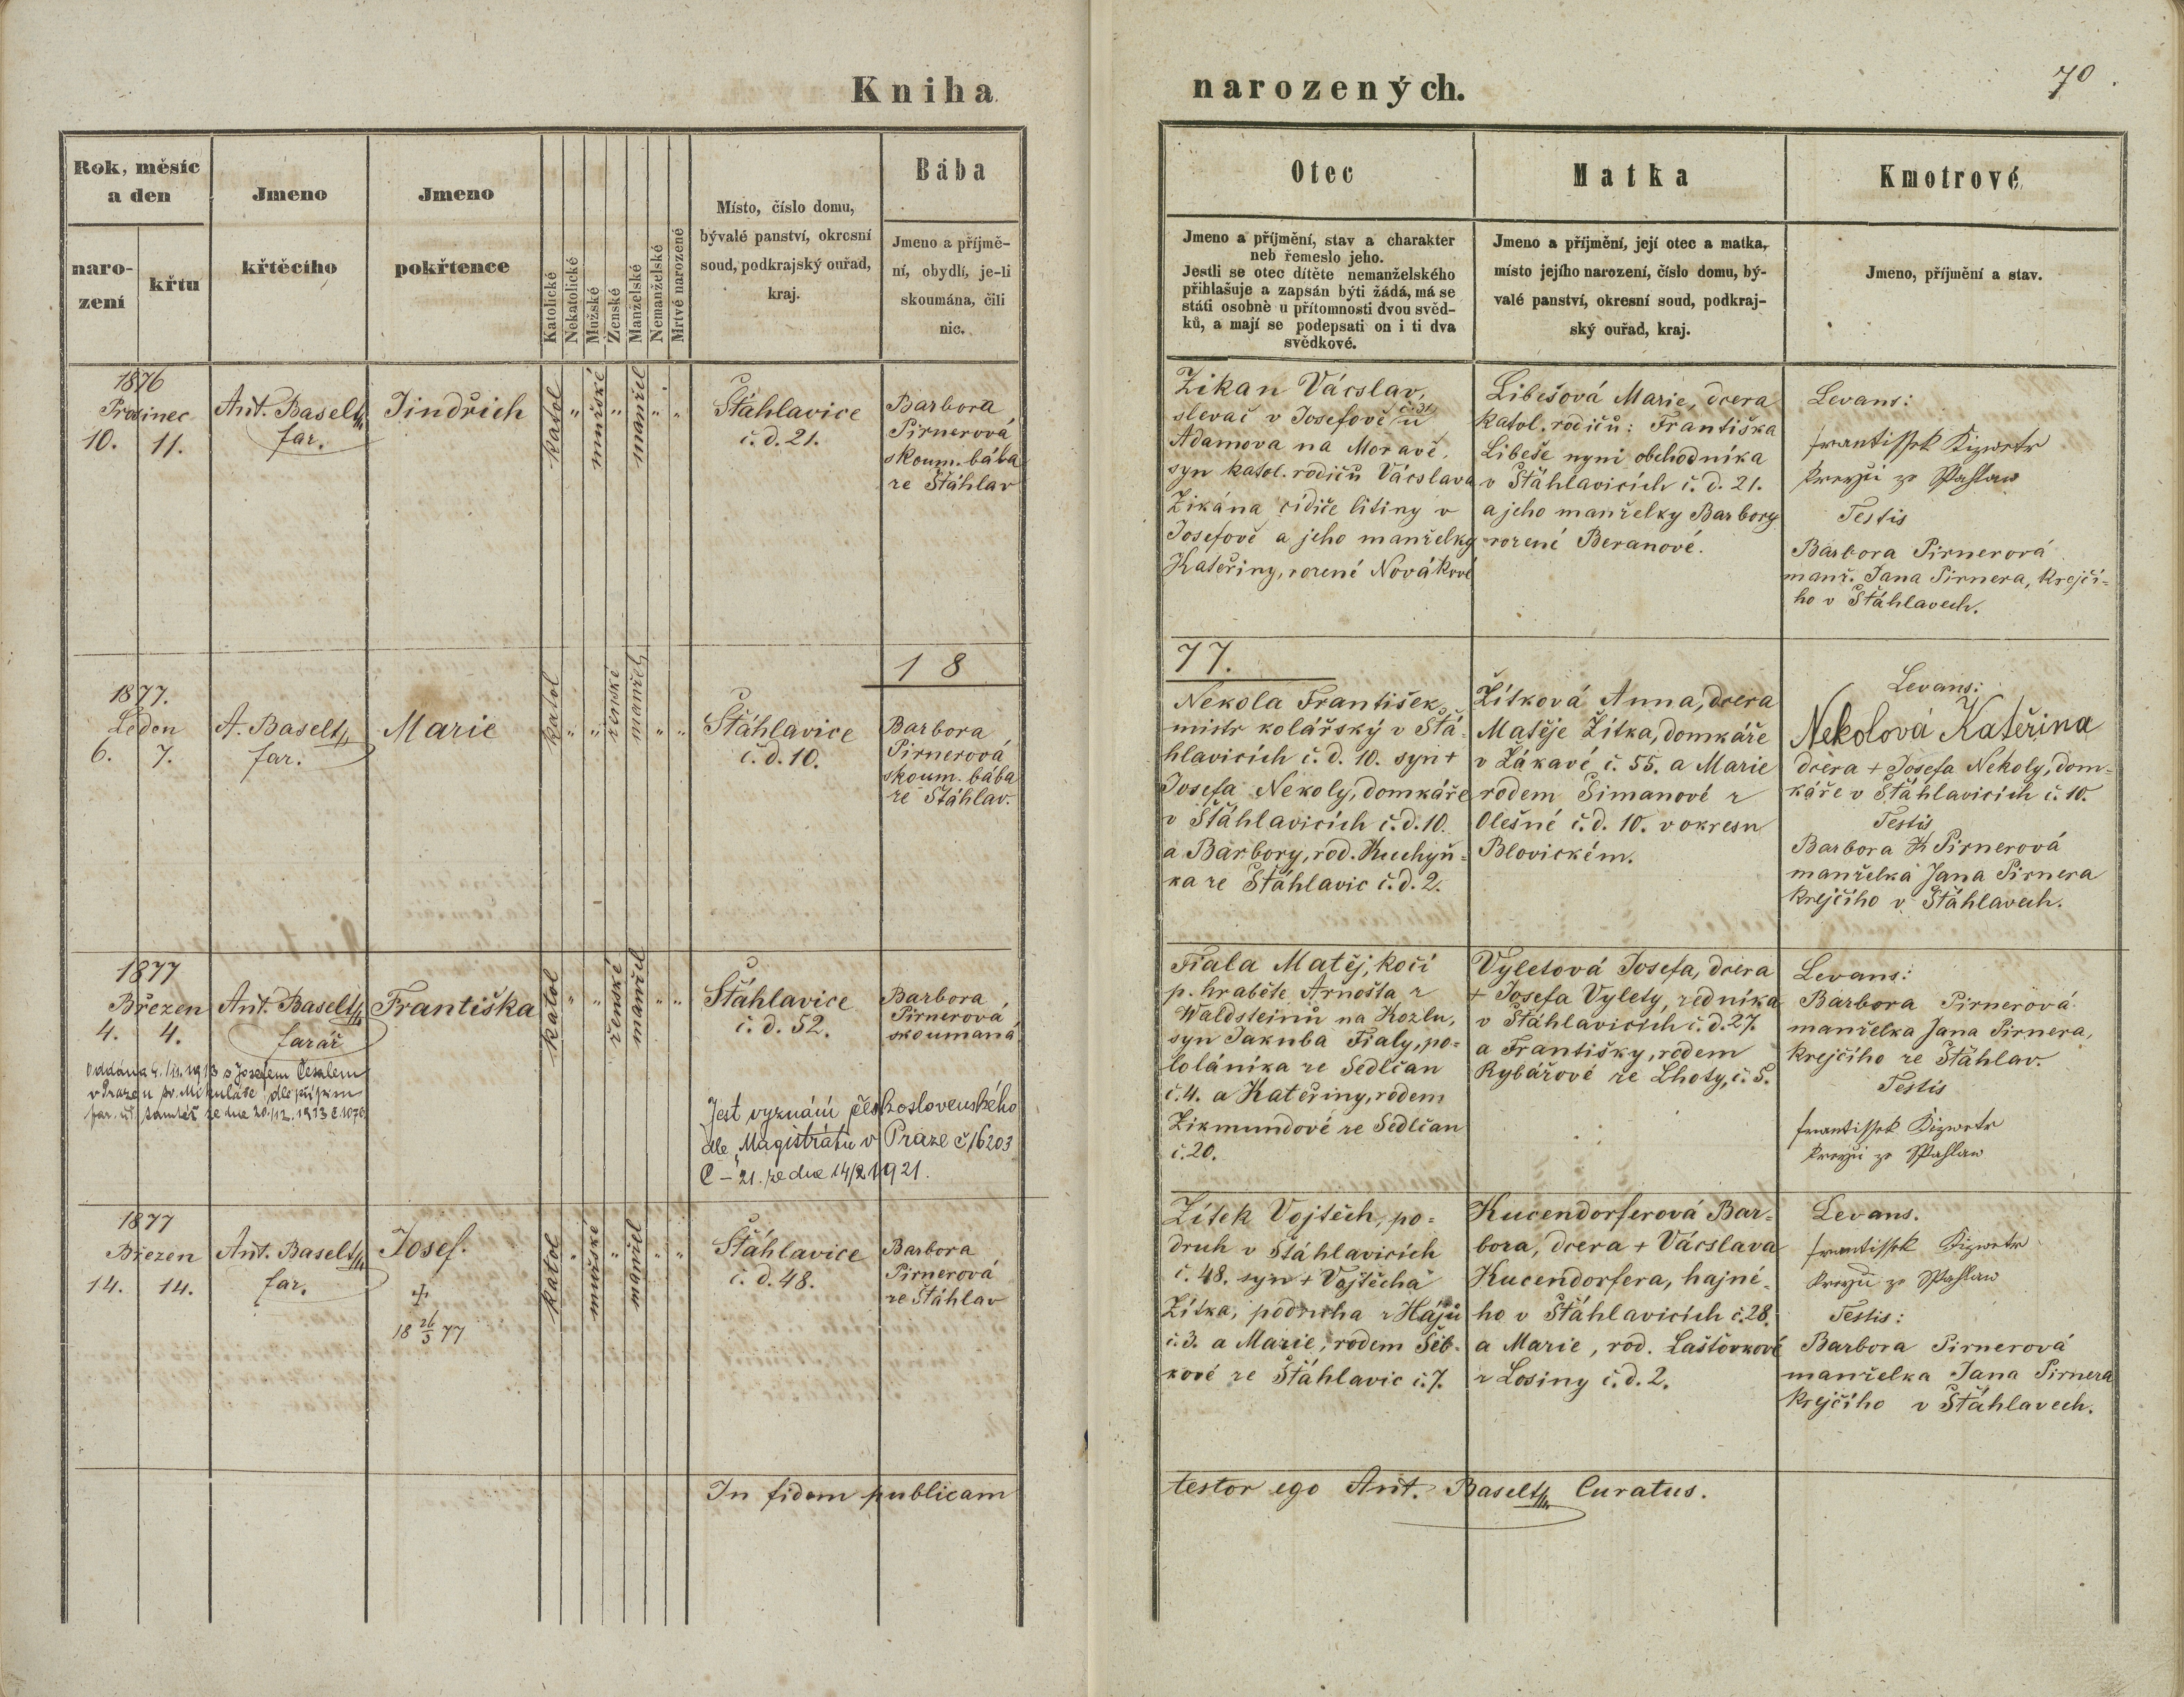 Kniha
narozených.
70
Rok, měsíc
a den
naro-
zení
křtu
Jmeno
křtěcího
Jmeno
pokřtence
Katolické
Nekatolické
Mužské
Ženské
Manželské
Nemanželské
Mrtvě narozené
Místo, číslo domu,
bývalé panství, okresní
soud, podkrajský ouřad,
kraj.
Bába
Jmeno a příjmě-
ní, obydlí, je-li
skoumána, čili
nic.
Otec
Jmeno a příjmění, stav a charakter
neb řemeslo jeho.
Jestli se otec dítěte nemanželského
přihlašuje a zapsán býti žádá, má se
státi osobně u přítomnosti dvou svěd-
ků, a mají se podepsati on i ti dva
svědkové.
Matka
Jmeno a příjmění, její otec a matka,
místo jejího narození, číslo domu, bý-
valé panství, okresní soud, podkraj-
ský ouřad, kraj.
Kmotrové
Jmeno, příjmění a stav.
1876
Prosinec
10. 11.
Ant. Baselt
far.
Jindřich
katol
"
mužské
"
manžel
"
"
Štáhlavice
č. d. 21.
Barbora
Pirnerová
skoum. bába
ze Štáhlav
Zikan Václav,
slevač v Josefově č. 31 u
Adamova na Moravě,
syn katol. rodičů Václava
Zikána řidiče litiny v
Josefově a jeho manželky
Kateřiny, rozené Novákové
Libešová Marie, dcera
katol. rodičů: Františka
Libeše nyni obchodníka
v Štáhlavicích č. d. 21.
a jeho manželky Barbory
rozené Beranové.
Levans:
Testis
Barbora Pirnerová
manž. Jana Pirnera, krejčí=
ho v Štáhlavech.
18
77.
1877.
Leden
6. 7.
A. Baselt
far.
Marie
katol
"
"
ženské
manžel
"
"
Štáhlavice
č. d. 10.
Barbora
Pirnerová
skoum. bába
ze Štáhlav.
Nekola František,
mistr kolářský v Štá=
hlavicích č. d. 10. syn +
Josefa Nekoly, domkáře
v Štáhlavicích č. d. 10.
a Barbory, rod. Kuchyň=
ka ze Štáhlavic č. d. 2.
Žítková Anna, dcera
Matěje Žítka, domkáře
v Žákavé č. 55. a Marie
rodem Šimanové z
Olešné č. d. 10. v okresu
Blovickém.
Levans:
Nekolová Kateřina
dcera + Josefa Nekoly, dom=
káře v Štáhlavicích č. 10.
Testis
Barbora Pirnerová
manželka Jana Pirnera
krejčího v Štáhlavech.
1877
Březen
4. 4.
Ant. Baselt
farář
Františka
katol
"
"
ženské
manžel
"
"
Štáhlavice
č. d. 52.
Barbora
Pirnerová
skoumaná
Oddána 4./11. 1913 s Josefem Česalem
v Praze u sv. Mikuláše dle přípisu
far. úř. tamtéž ze dne 20./12. 1913 č 1076
Jest vyznání československého
dle Magistrátu v Praze č/6203
C – 21. ze dne 14/2 1921.
Fiala Matěj, kočí
p. hraběte Arnošta z
Waldsteinů na Kozlu,
syn Jakuba Fialy, po=
loláníka ze Sedlčan
č. 4. a Kateřiny, rodem
Zikmundové ze Sedlčan
č. 20.
Vyletová Josefa, dcera
+ Josefa Vylety, zedníka
v Štáhlavicích č. d. 27.
a Františky, rodem
Rybářové ze Lhoty, č. 5.
Levans:
Barbora Pirnerová
manželka Jana Pirnera,
krejčího ze Štáhlav.
Testis
1877
Březen
14. 14.
Ant. Baselt
far.
Josef.
18 26/3 77
katol
"
mužské
"
manžel
"
"
Štáhlavice
č. d. 48.
Barbora
Pirnerová
ze Štáhlav
Žítek Vojtěch, po=
druh v Štáhlavicích
č. 48. syn + Vojtěcha
Žítka, podruha z Hájů
č. 3. a Marie, rodem Šeb=
kové ze Štáhlavic č. 7.
Kucendorferová Bar=
bora, dcera + Václava
Kucendorfera, hajné=
ho v Štáhlavicích č. 28.
a Marie, rod. Laštovkové
z Losiny č. d. 2.
Levans.
Testis:
Barbora Pirnerová
manželka Jana Pirnera
krejčího v Štáhlavech.
In fidem publicam
testor ego Ant. Baselt Curatus.